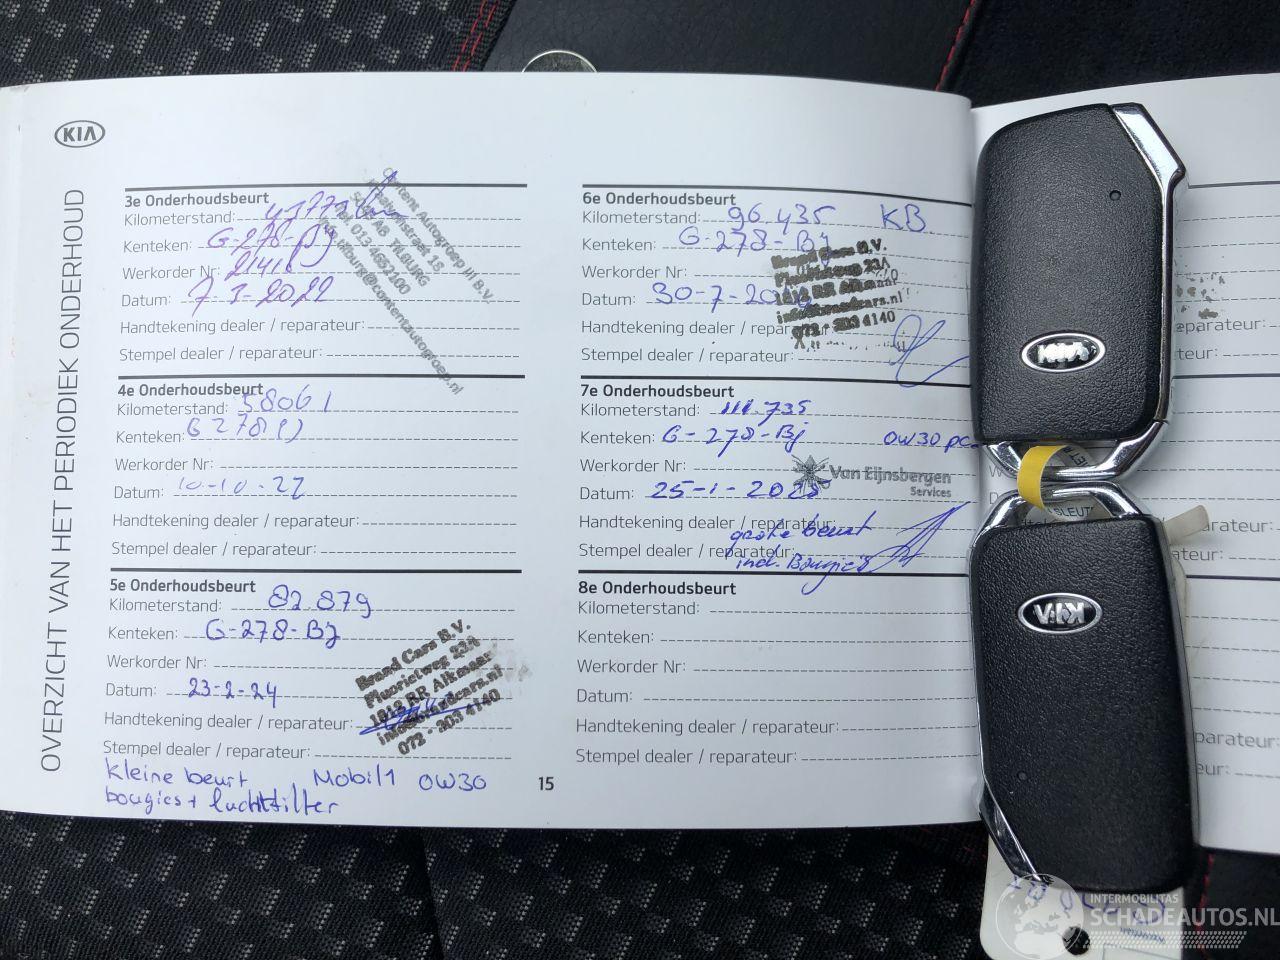 KIA
OVERZICHT VAN HET PERIODIEK ONDERHOUD
3e Onderhoudsbeurt
Kilometerstand:
Kenteken: G-278-BJ
Werkorder Nr: 21416
Datum: 7-3-2022
Handtekening dealer / reparateur:
Stempel dealer / reparateur:
Content Autogroep III B.V.
TILBURG
Tel. 013-4652100
tilburg@contentautogroep.nl
4e Onderhoudsbeurt
Kilometerstand: 58061
Kenteken: G278BJ
Werkorder Nr:
Datum: 10-10-22
Handtekening dealer / reparateur:
Stempel dealer / reparateur:
5e Onderhoudsbeurt
Kilometerstand: 82.879
Kenteken: G-278-BJ
Werkorder Nr:
Datum: 23-2-24
Handtekening dealer / reparateur:
Stempel dealer / reparateur:
Brand Cars N.V.
Fluorietweg 23A
1812 RR Alkmaar
info@brandcars.nl
072 - 303 4140
kleine beurt Mobil1 0W30
bougies + luchtfilter
15
6e Onderhoudsbeurt
Kilometerstand: 96.435 KB
Kenteken: G-278-BJ
Werkorder Nr:
Datum: 30-7-20
Handtekening dealer / reparateur:
Stempel dealer / reparateur:
Brand Cars N.V.
Fluorietweg 23A
1812 RR Alkmaar
info@brandcars.nl
072 - 303 4140
7e Onderhoudsbeurt
Kilometerstand: 111.735
Kenteken: G-278-BJ 0W30
Werkorder Nr:
Van Eijnsbergen
Services
Datum: 25-1-2025
Handtekening dealer / reparateur:
grote beurt
Stempel dealer / reparateur:
incl. Bougie's
8e Onderhoudsbeurt
Kilometerstand:
Kenteken:
Werkorder Nr:
Datum:
Handtekening dealer / reparateur:
Stempel dealer / reparateur:
KIA
KIA
INTERMOBILITAS
SCHADEAUTOS.NL